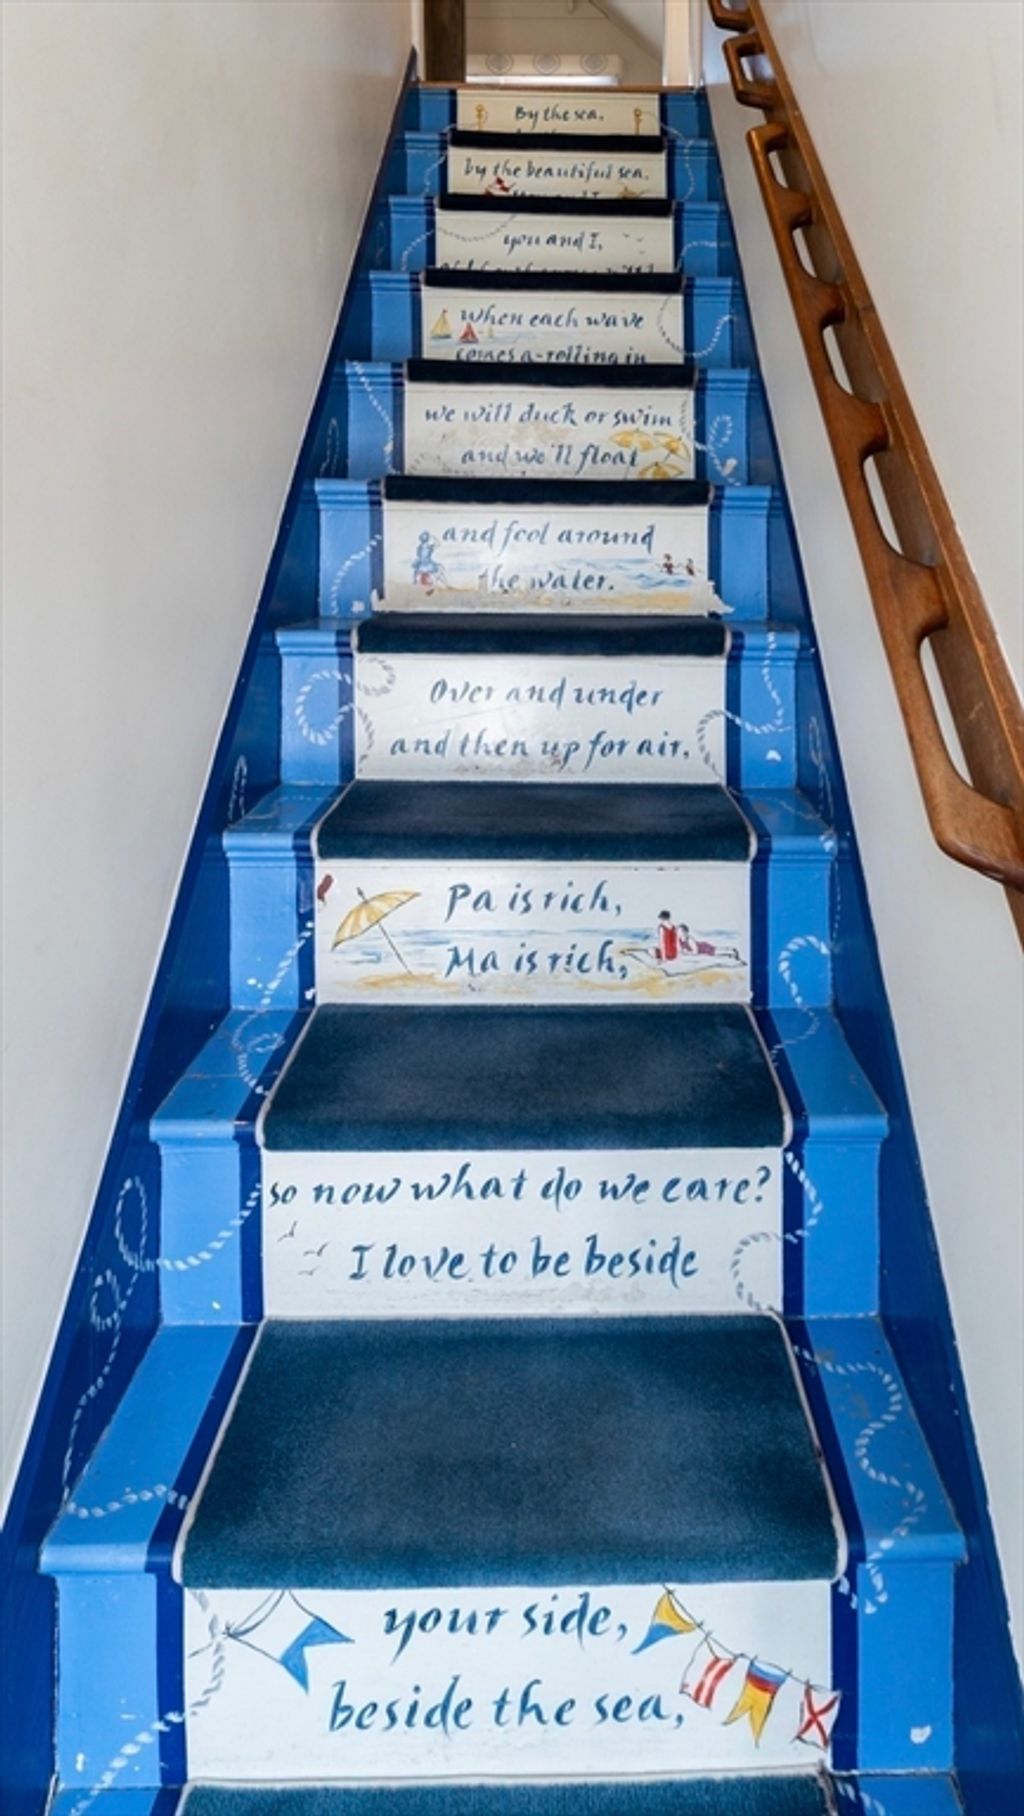 By the sea,
by the beautiful sea.
you and I,
when each wave
comes a-rolling in
we will duck or swim
and we'll float
and fool around
the water.
Over and under
and then up for air.
Pa is rich,
Ma is rich,
so now what do we care?
I love to be beside
your side,
beside the sea,